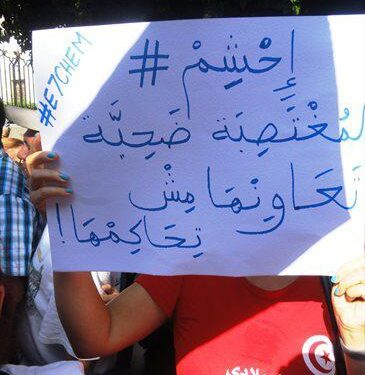 #E7CHEM
إِحْشِمْ #
لمُغْتَصِبَة ضَحِيَّة
تَعَاوِنْهَا مِشْ
تِحَاكِمْهَا!
بلادي